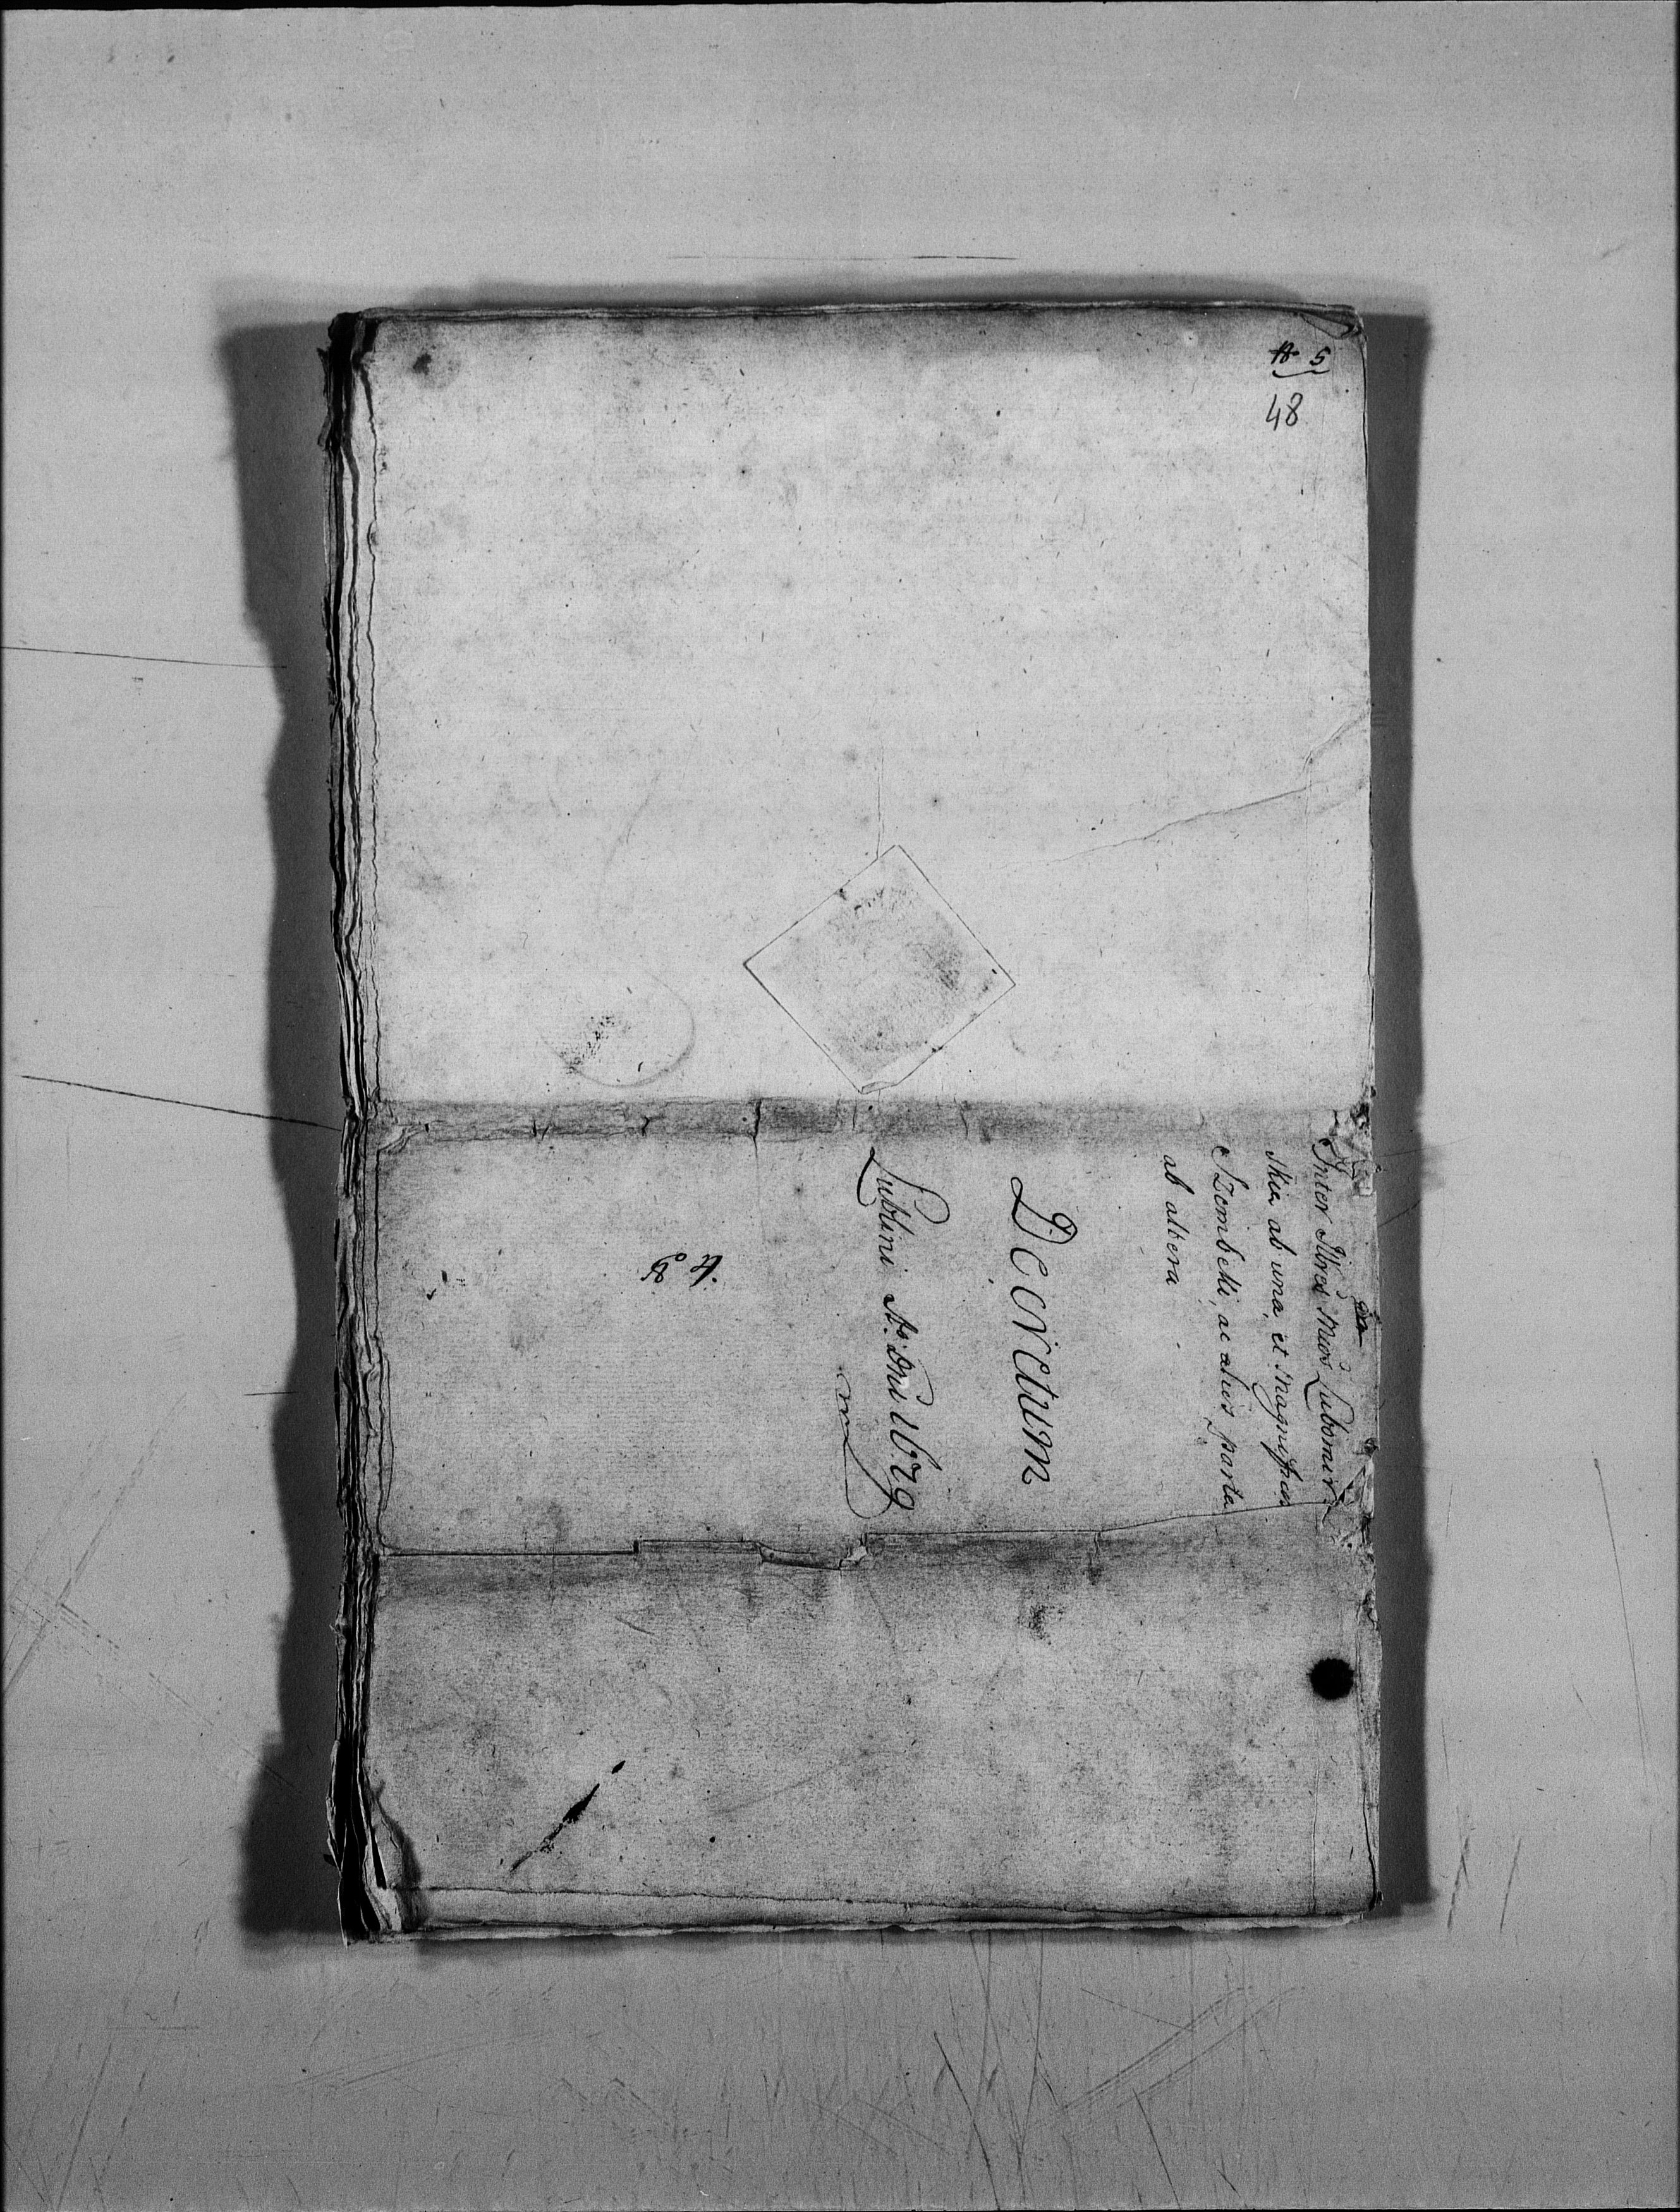 N 5
48
Inter Illres Mcos Lubomir
skie ab una, et Magnificos
Szembeki, ac alios parte
ab altera
Decretum
Lublini Ao. Dni 1679
No 4.